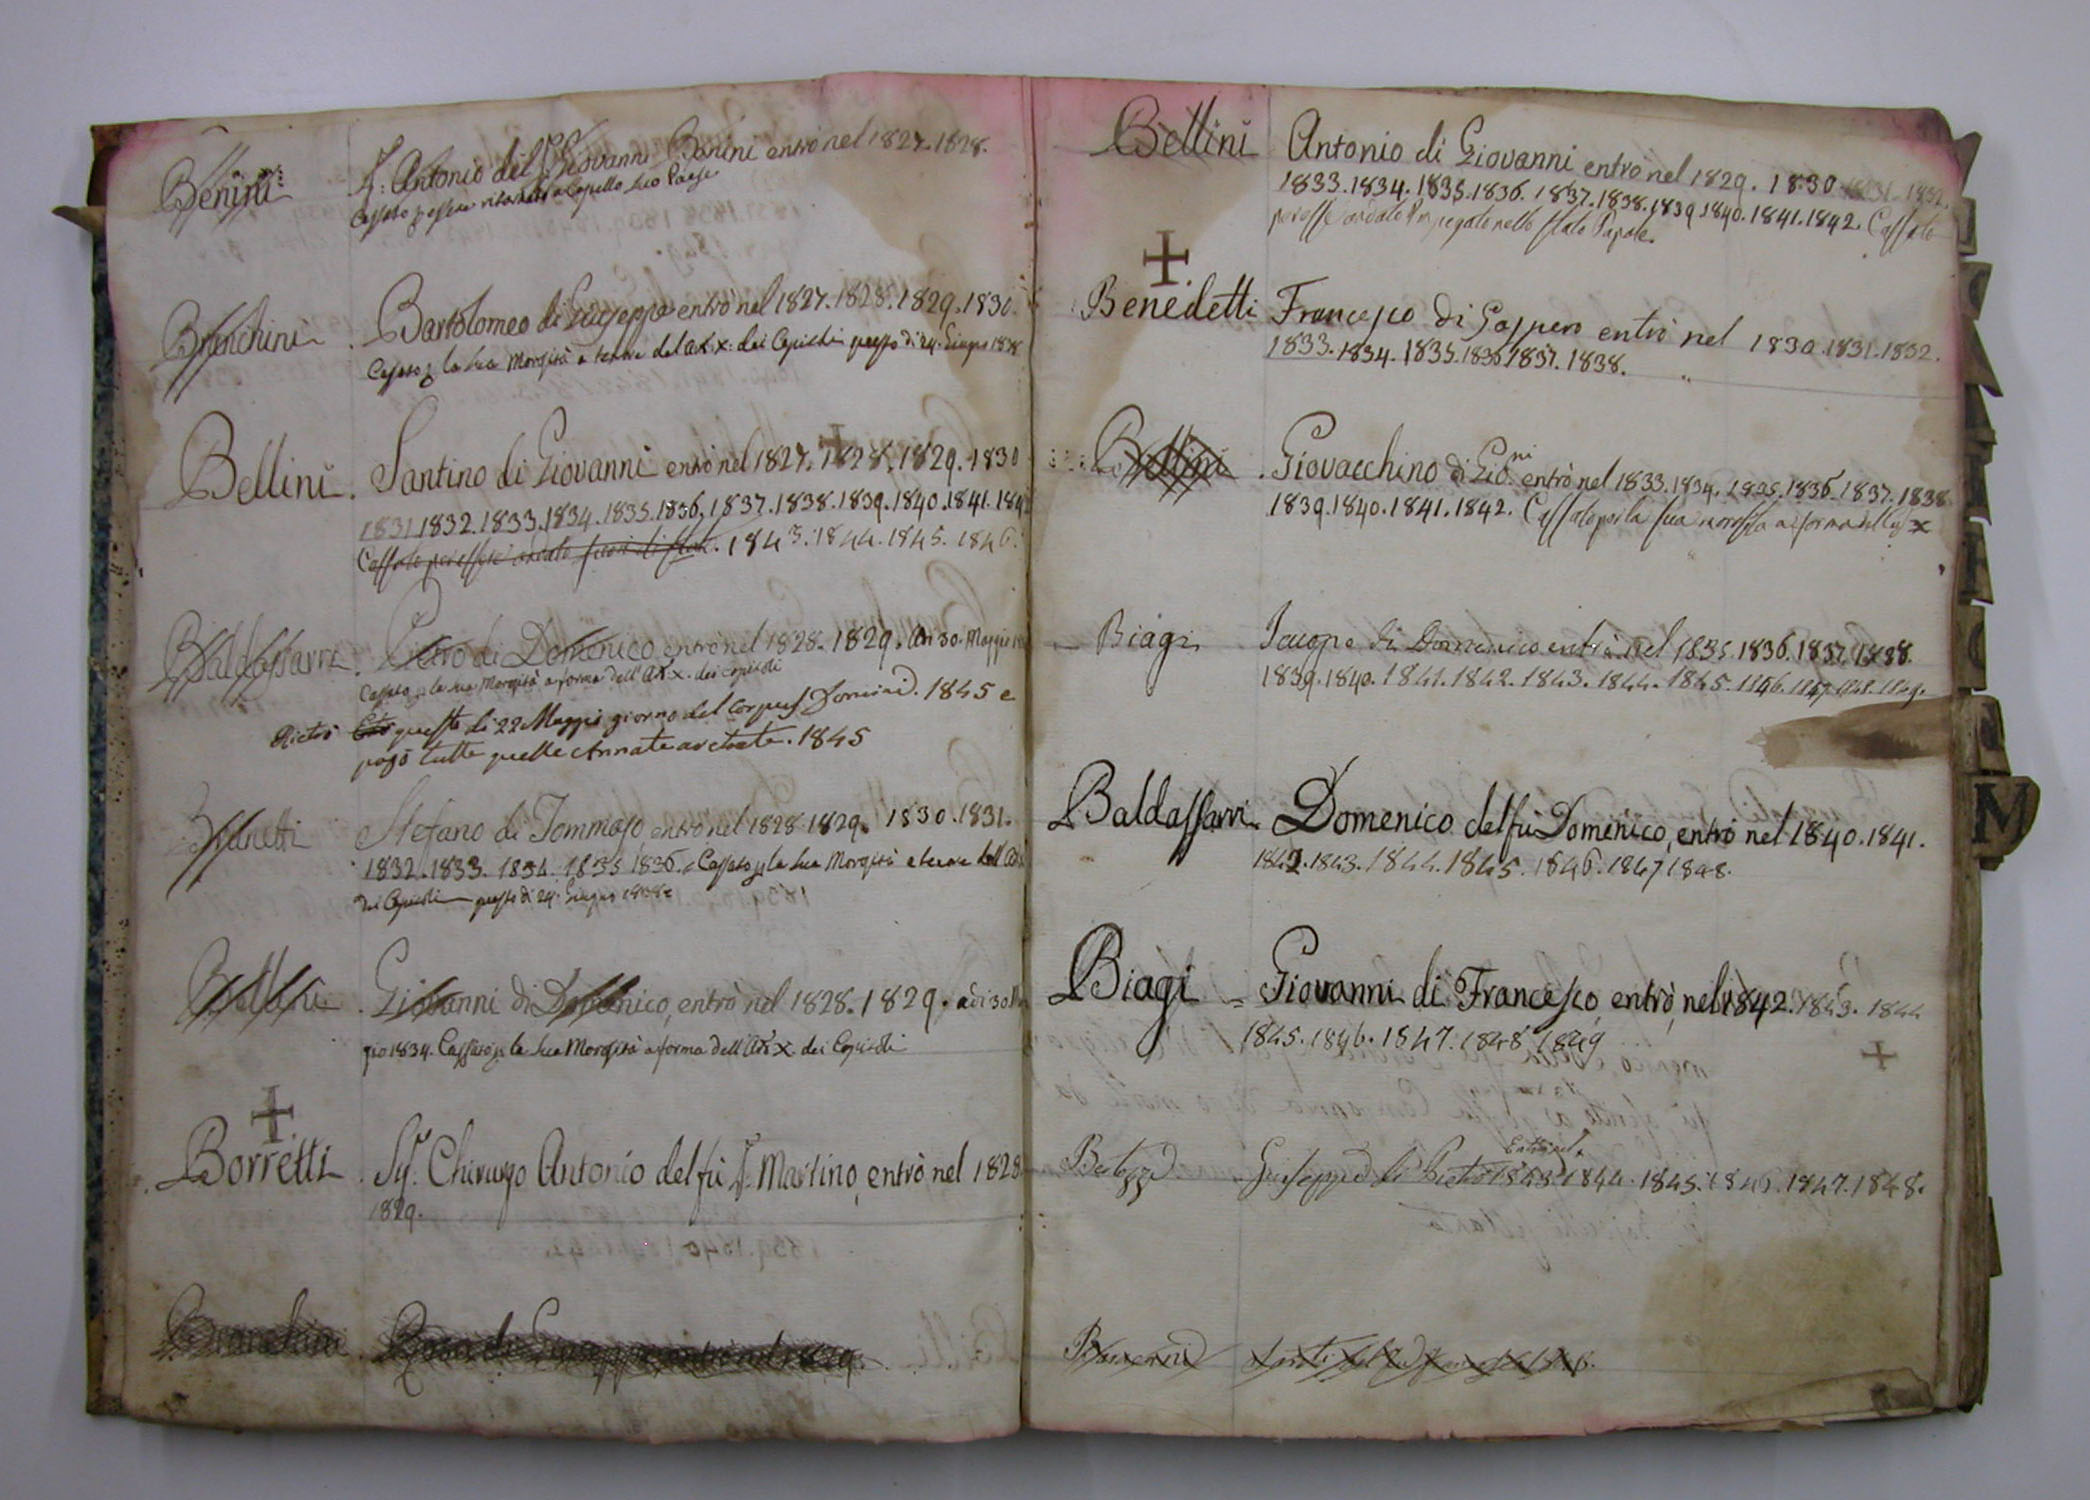 Benini
Antonio del Giovanni Benini entrò nel 1827. 1828.
Cassato p essere ritornato a Capello suo Paese
Bianchini
Bartolomeo di Giuseppe entrò nel 1827. 1828. 1829. 1830.
Cassato p la sua Morosità a tenore del x. dei Capitoli questo dì 24. Giugno 1838
Bellini. Santino di Giovanni entrò nel 1827. 1828. 1829. 1830
1831. 1832. 1833. 1834. 1835. 1836. 1837. 1838. 1839. 1840. 1841. 1842
Cassato per essere andato fuori di . 1843. 1844. 1845. 1846.
Baldassarri. Pietro di Domenico entrò nel 1828. 1829. 30. Maggio
Cassato p la sua Morosità a forma dell' x. dei Capitoli
questo dì 22 Maggio giorno del Corpus Domini. 1845 e
pagò tutte quelle Annate aretrate. 1845
Brunetti
Stefano di Tommaso entrò nel 1828. 1829. 1830. 1831.
1832. 1833. 1834. 1835. 1836. Cassato p la sua Morosità a tenore dell
dei Capitoli questo dì 24. Giugno 1838
Bellini. Giovanni di Domenico, entrò nel 1828. 1829. adì 30
gio 1834. Cassato p la sua Morosità a forma dell' x dei Capitoli
Borretti. Sig. Chirurgo Antonio del fù Martino, entrò nel 1828
1829.
Rosa di Giuseppe entrò nel 1829.
Bellini Antonio di Giovanni entrò nel 1829. 1830. 1831. 1832.
1833. 1834. 1835. 1836. 1837. 1838. 1839. 1840. 1841. 1842. Cassato
per esse andato Impiegato nello stato Papale.
Benedetti Francesco di Gaspero entrò nel 1830. 1831. 1832.
1833. 1834. 1835. 1836. 1837. 1838.
Bellini. Giovacchino di Gio.ni entrò nel 1833. 1834. 1835. 1836. 1837. 1838.
1839. 1840. 1841. 1842. Cassato per la sua morosita a forma dell x
Biagi. Jacopo di Domenico entrò nel 1835. 1836. 1837. 1838.
1839. 1840. 1841. 1842. 1843. 1844. 1845. 1846. 1847. 1848. 1849.
Baldassarri. Domenico del fù Domenico, entrò nel 1840. 1841.
1842. 1843. 1844. 1845. 1846. 1847 1848.
Biagi = Giovanni di Francesco, entrò, nel 1842. 1843. 1844
1845. 1846. 1847. 1848 1849
Entrò nel
Giuseppe di Pietro 1843. 1844. 1845. 1846. 1847. 1848.
M